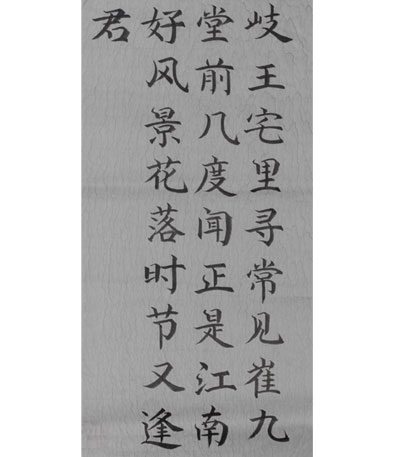 岐王宅里寻常见崔九
堂前几度闻正是江南
好风景花落时节又逢
君